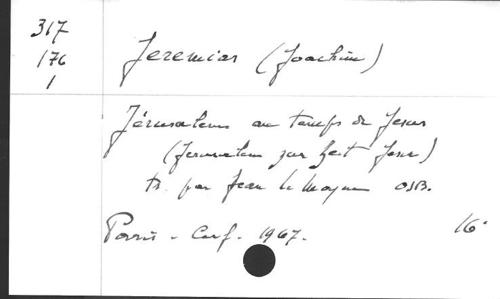 317
176
1
Jeremias (Joachim)
Jérusalem au temps de Jesus
(Jerusalem zur Zeit Jesu)
tr. par Jean le Moyne OSB.
Paris - Cerf. 1967.
16°